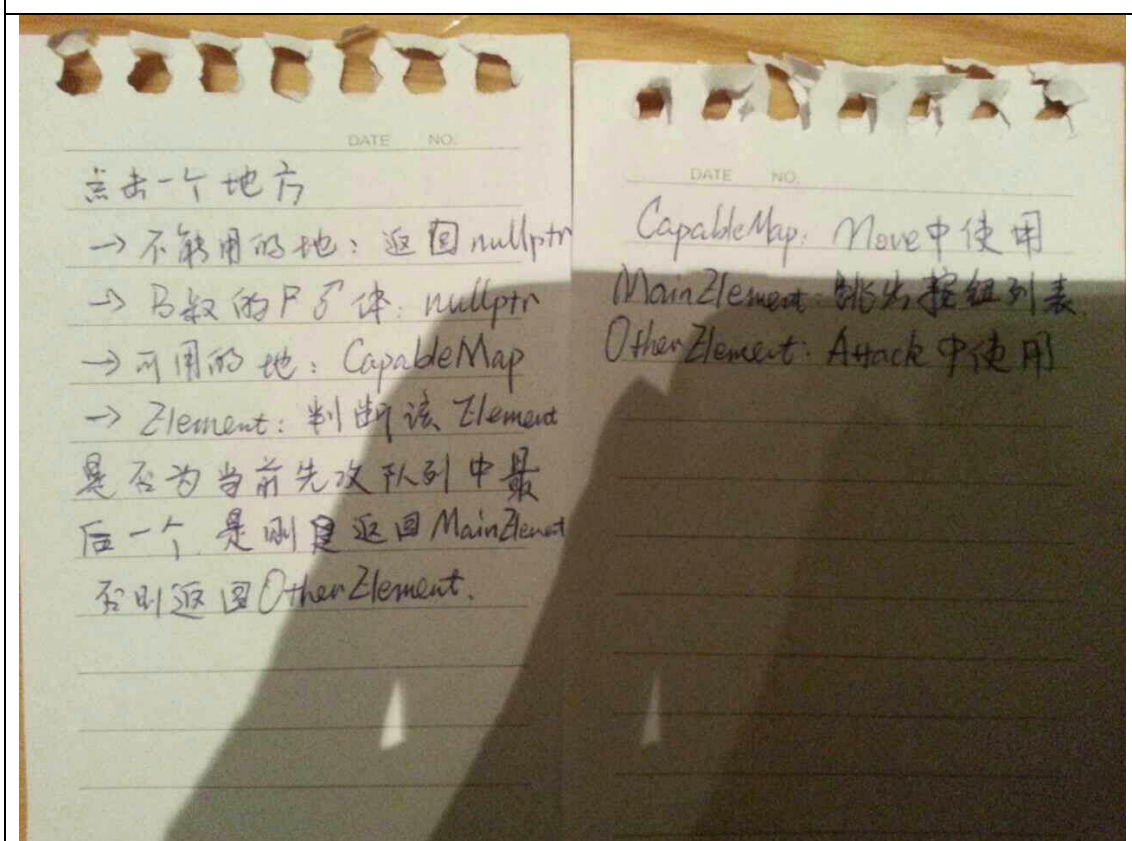 DATE NO.
点击一个地方
→不能用的地：返回nullptr
→B叔的尸体：nullptr
→可用的地：CapableMap
→Element：判断该Element
是否为当前先攻队列中最
后一个 是则返回MainElement
否则返回OtherElement.
DATE NO.
CapableMap：Move中使用
MainElement：跳出按钮列表
OtherElement：Attack中使用